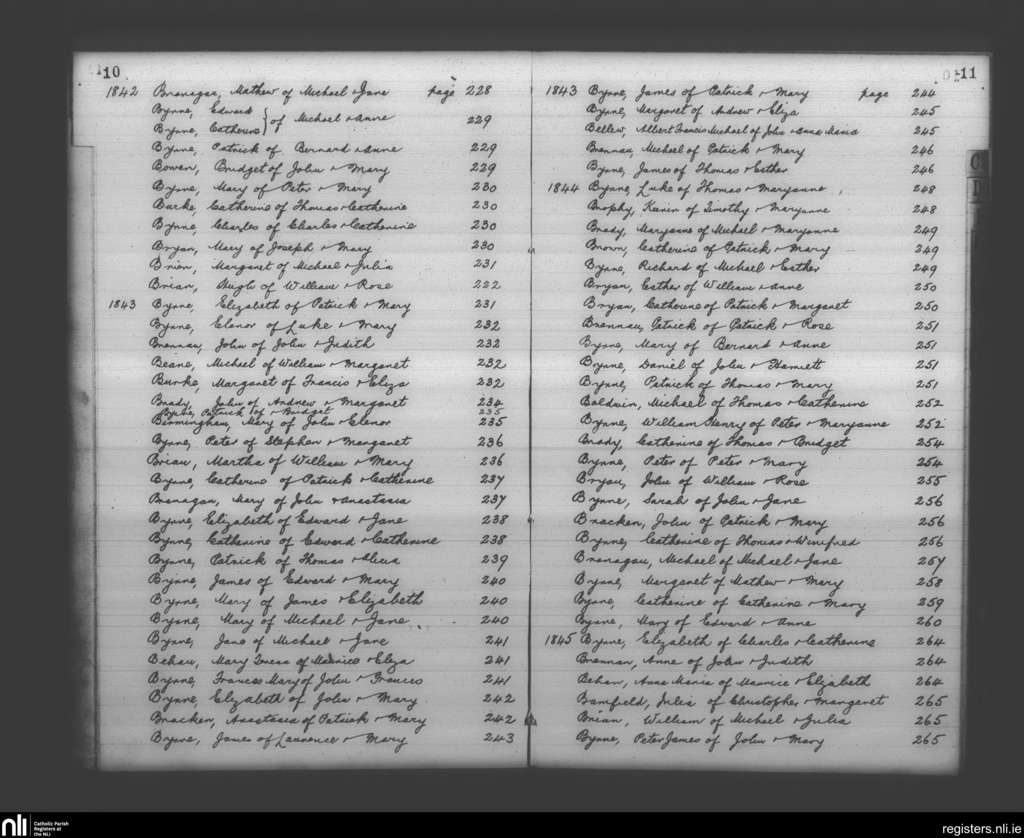 10
1842 Branagan, Mathew of Michael & Jane page 228
Byrne, Edward } of Michael & Anne 229
Byrne, Catherine
Byrne, Patrick of Bernard & Anne 229
Bowen, Bridget of John & Mary 229
Byrne, Mary of Peter & Mary 230
Burke, Catherine of Thomas & Catherine 230
Byrne, Charles of Charles & Catherine 230
Bryan, Mary of Joseph & Mary 230
Brien, Margaret of Michael & Julia 231
Brian, Hugh of William & Rose 222
1843 Byrne, Elizabeth of Patrick & Mary 231
Byrne, Elenor of Luke & Mary 232
Brennan, John of John & Judith 232
Beane, Michael of William & Margaret 232
Burke, Margaret of Francis & Eliza 232
Brady, John of Andrew & Margaret 234
Byrne, Patrick of & Bridget 235
Birmingham, Mary of John & Elenor 235
Byrne, Peter of Stephen & Margaret 236
Brian, Martha of William & Mary 236
Byrne, Catherine of Patrick & Catherine 237
Branagan, Mary of John & Anastasia 237
Byrne, Elizabeth of Edward & Jane 238
Byrne, Catherine of Edward & Catherine 238
Byrne, Patrick of Thomas & 239
Byrne, James of Edward & Mary 240
Byrne, Mary of James & Elizabeth 240
Byrne, Mary of Michael & Jane 240
Byrne, Jane of Michael & Jane 241
Behan, Mary Teresa of Maurice & Eliza 241
Byrne, Frances Mary of John & Frances 241
Byrne, Elizabeth of John & Mary 242
Bracken, Anastasia of Patrick & Mary 242
Byrne, James of Laurence & Mary 243
11
1843 Byrne, James of Patrick & Mary page 244
Byrne, Margaret of Andrew & Eliza 245
Bellew, Albert Francis Michael of John & Anna Maria 245
Brennan, Michael of Patrick & Mary 246
Byrne, James of Thomas & Esther 246
1844 Byrne, Luke of Thomas & Maryanne 248
Brophy, of Timothy & Maryanne 248
Brady, Maryanne of Michael & Maryanne 249
Brown, Catherine of Patrick & Mary 249
Byrne, Richard of Michael & Esther 249
Bryan, Esther of William & Anne 250
Bryan, Catherine of Patrick & Margaret 250
Brennan, Patrick of Patrick & Rose 251
Byrne, Mary of Bernard & Anne 251
Byrne, Daniel of John & Harriett 251
Byrne, Patrick of Thomas & Mary 251
Baldwin, Michael of Thomas & Catherine 252
Byrne, William Henry of Peter & Maryanne 252
Brady, Catherine of Thomas & Bridget 254
Byrne, Peter of Peter & Mary 254
Bryan, John of William & Rose 255
Byrne, Sarah of John & Jane 256
Bracken, John of Patrick & Mary 256
Byrne, Catherine of Thomas & Winifred 256
Branagan, Michael of Michael & Jane 257
Byrne, Margaret of Mathew & Mary 258
Byrne, Catherine of Catherine & Mary 259
Byrne, Mary of Edward & Anne 260
1845 Byrne, Elizabeth of Charles & Catherine 264
Brennan, Anne of John & Judith 264
Behan, Anna Maria of Maurice & Elizabeth 264
Banfield, Julia of Christopher & Margaret 265
Brian, William of Michael & Julia 265
Byrne, Peter James of John & Mary 265
C
D
nli Catholic Parish
Registers at
the NLI
registers.nli.ie